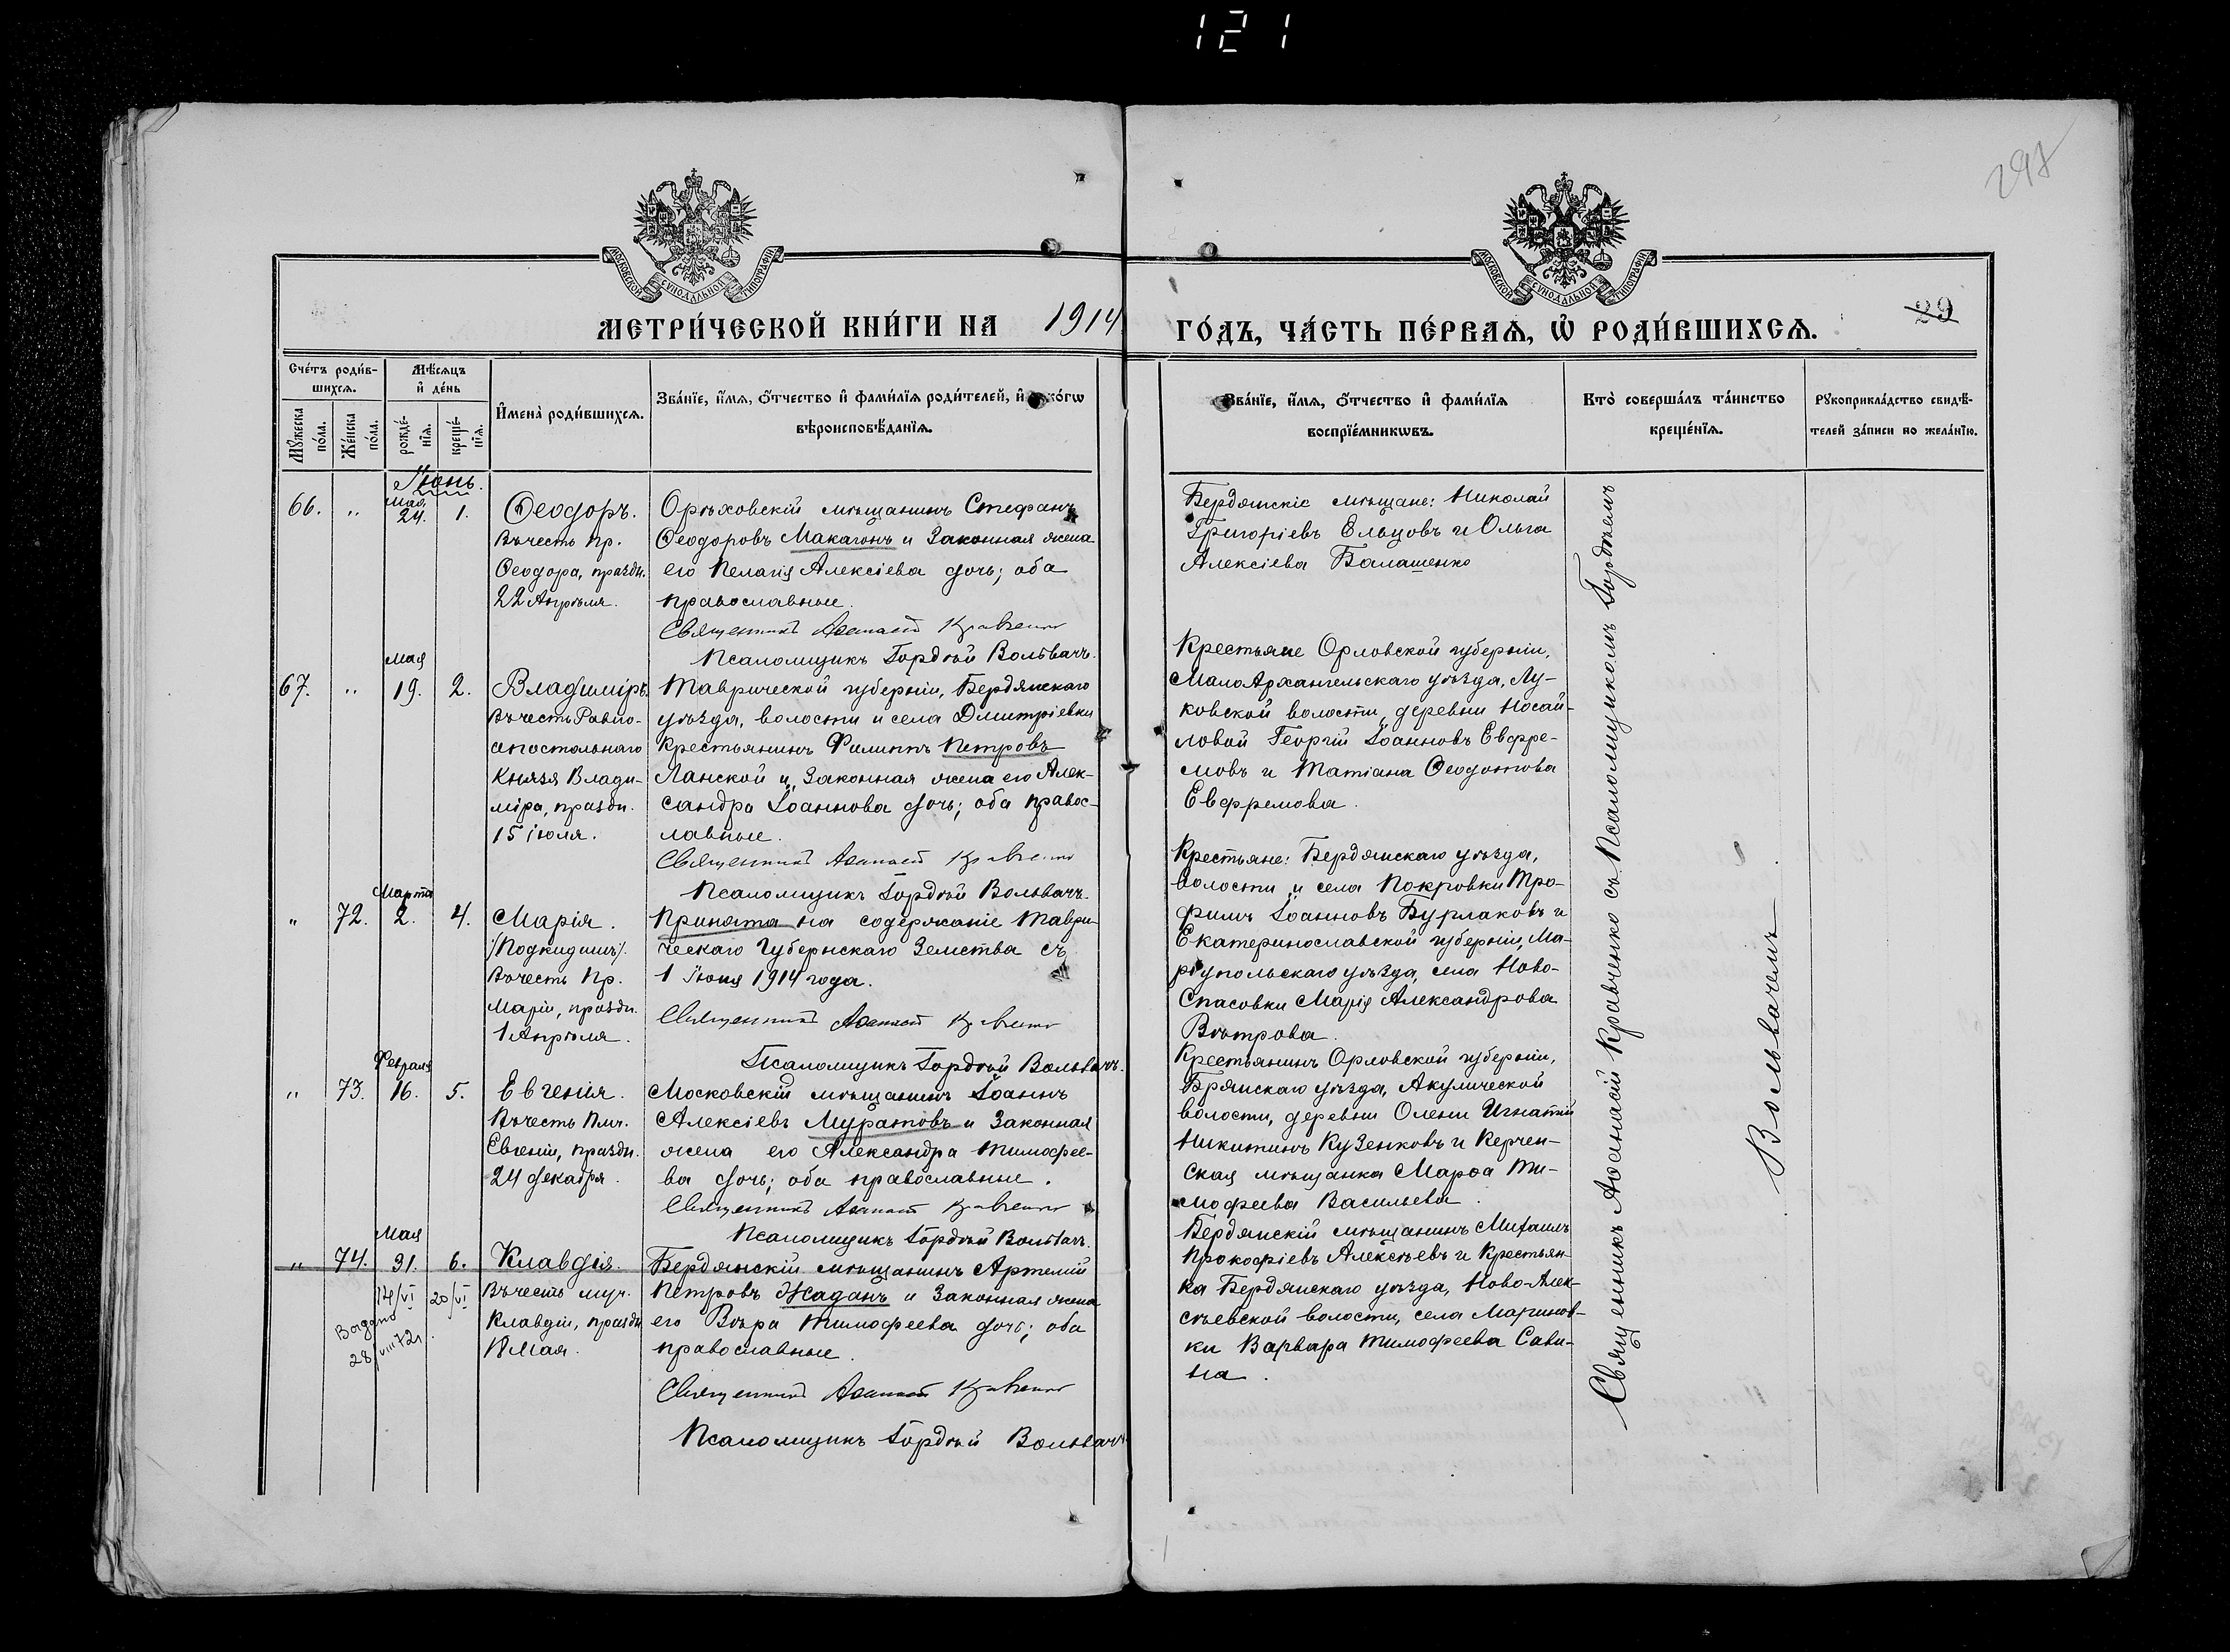 121
297
МОСКОВСКОЙ СУНОДАЛЬНОЙ ТИПОГРАФІИ
МОСКОВСКОЙ СУНОДАЛЬНОЙ ТИПОГРАФІИ
МЕТРИ́ЧЕСКОЙ КНИ́ГИ НА 1914 ГО́ДЪ, ЧА́СТЬ ПЕ́РВАѦ, Ѡ҆ РОДИ́ВШИХСѦ.
29
Сче́тъ роди́в-
шихсѧ.
Мѣ́сѧцъ
и҆ де́нь
Мꙋ́жеска
по́ла.
Же́нска
по́ла.
рожде́-
нїѧ.
креще́-
нїѧ.
И҆мена̀ роди́вшихсѧ.
Зва́нїе, и҆́мѧ, ѻ҆́тчество и҆ фами́лїѧ роди́телей, и҆ како́гѡ
вѣроисповѣ́данїѧ.
Зва́нїе, и҆́мѧ, ѻ҆́тчество и҆ фами́лїѧ
воспрїе́мникѡвъ.
Кто̀ соверша́лъ та́инство
креще́нїѧ.
Рꙋкоприкла́дство свидѣ́-
телей за́писи по жела́нїю.
Іюнь.
66. " Мая 24. 1.
Ѳеодоръ.
Въ честь пр.
Ѳеодора, праздн.
22 Апрѣля.
Орѣховскій мѣщанинъ Стефанъ
Ѳеодоровъ Макагонъ и законная жена
его Пелагія Алексіева дочь; оба
православные.
Священникъ Аѳанасій Кравченко
Псаломщикъ Гордѣй Вольвачъ.
Бердянскіе мѣщане: Николай
Григоріевъ Ельцовъ и Ольга
Алексіева Балашенко
67. " Мая 19. 2.
Владиміръ.
Въ честь Равно-
апостольнаго
Князя Влади-
міра, праздн.
15 іюля.
Таврической губерніи, Бердянскаго
уѣзда, волости и села Дмитріевки
крестьянинъ Филиппъ Петровъ
Ланской и законная жена его Алек-
сандра Іоаннова дочь; оба правос-
лавные.
Священникъ Аѳанасій Кравченко
Псаломщикъ Гордѣй Вольвачъ.
Крестьяне Орловской губерніи,
МалоАрхангельскаго уѣзда, Лу-
ковской волости, деревни Носай-
ловой Георгій Іоанновъ Евфре-
мовъ и Татіана Ѳеодотова
Евфремова.
" 72. Марта 2. 4.
Марія.
/Подкидышъ/.
Въ честь Пр.
Маріи, праздн.
1 Апрѣля.
Принята на содержаніе Таври-
ческаго Губернскаго Земства съ
1 Іюня 1914 года.
Священникъ Аѳанасій Кравченко
Псаломщикъ Гордѣй Вольвачъ.
Крестьяне: Бердянскаго уѣзда,
волости и села Покровки Тро-
фимъ Іоанновъ Бурлаковъ и
Екатеринославской губерніи, Ма-
ріупольскаго уѣзда, села Ново-
Спасовки Марія Александрова
Вѣтрова.
" 73. Февраля 16. 5.
Евгенія.
Въ честь Пмч.
Евгеніи, праздн.
24 декабря.
Московскій мѣщанинъ Іоаннъ
Алексіевъ Муратовъ и законная
жена его Александра Тимофее-
ва дочь; оба православные.
Священникъ Аѳанасій Кравченко
Псаломщикъ Гордѣй Вольвачъ.
Крестьянинъ Орловской губерніи,
Брянскаго уѣзда, Акулической
волости, деревни Олени Игнатій
Никитинъ Кузенковъ и Керчен-
ская мѣщанка Марѳа Ти-
мофеева Васильева.
" 74. Мая 31. 6.
14/VI 20/VI
28/VIII 72г.
Клавдія.
Въ честь муч.
Клавдіи, праздн.
18 Мая.
Бердянскій мѣщанинъ Артемій
Петровъ Жаданъ и законная жена
его Вѣра Тимофеева дочь; оба
православные.
Священникъ Аѳанасій Кравченко
Псаломщикъ Гордѣй Вольвачъ
Бердянскій мѣщанинъ Михаилъ
Прокофіевъ Алексѣевъ и Крестьян-
ка Бердянскаго уѣзда, Ново-Алек-
сѣевской волости, села Маринов-
ки Варвара Тимофеева Сави-
на.
Священникъ Аѳанасій Кравченко съ Псаломщикомъ Гордѣемъ
Вольвачемъ.